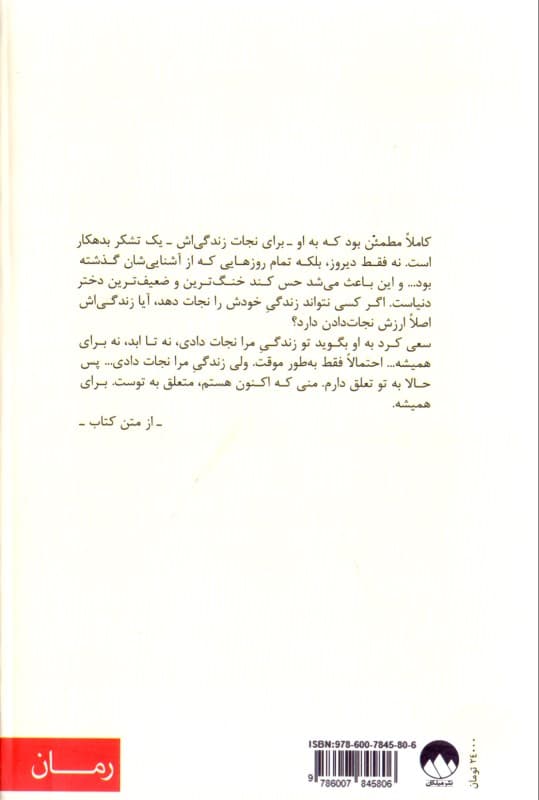 کاملاً مطمئن بود که به او ـ برای نجات زندگی‌اش ـ یک تشکر بدهکار
است. نه فقط دیروز، بلکه تمام روزهایی که از آشنایی‌شان گذشته
بود... و این باعث می‌شد حس کند خنگ‌ترین و ضعیف‌ترین دختر
دنیاست. اگر کسی نتواند زندگیِ خودش را نجات دهد، آیا زندگی‌اش
اصلاً ارزش نجات‌دادن دارد؟
سعی کرد به او بگوید تو زندگیِ مرا نجات دادی، نه تا ابد، نه برای
همیشه... احتمالاً فقط به‌طور موقت. ولی زندگیِ مرا نجات دادی... پس
حالا به تو تعلق دارم. منی که اکنون هستم، متعلق به توست. برای
همیشه.
ـ از متن کتاب ـ
رمــان
ISBN:978-600-7845-80-6
9 786007 845806
نشر میلکان
۲۴۰۰۰ تومان